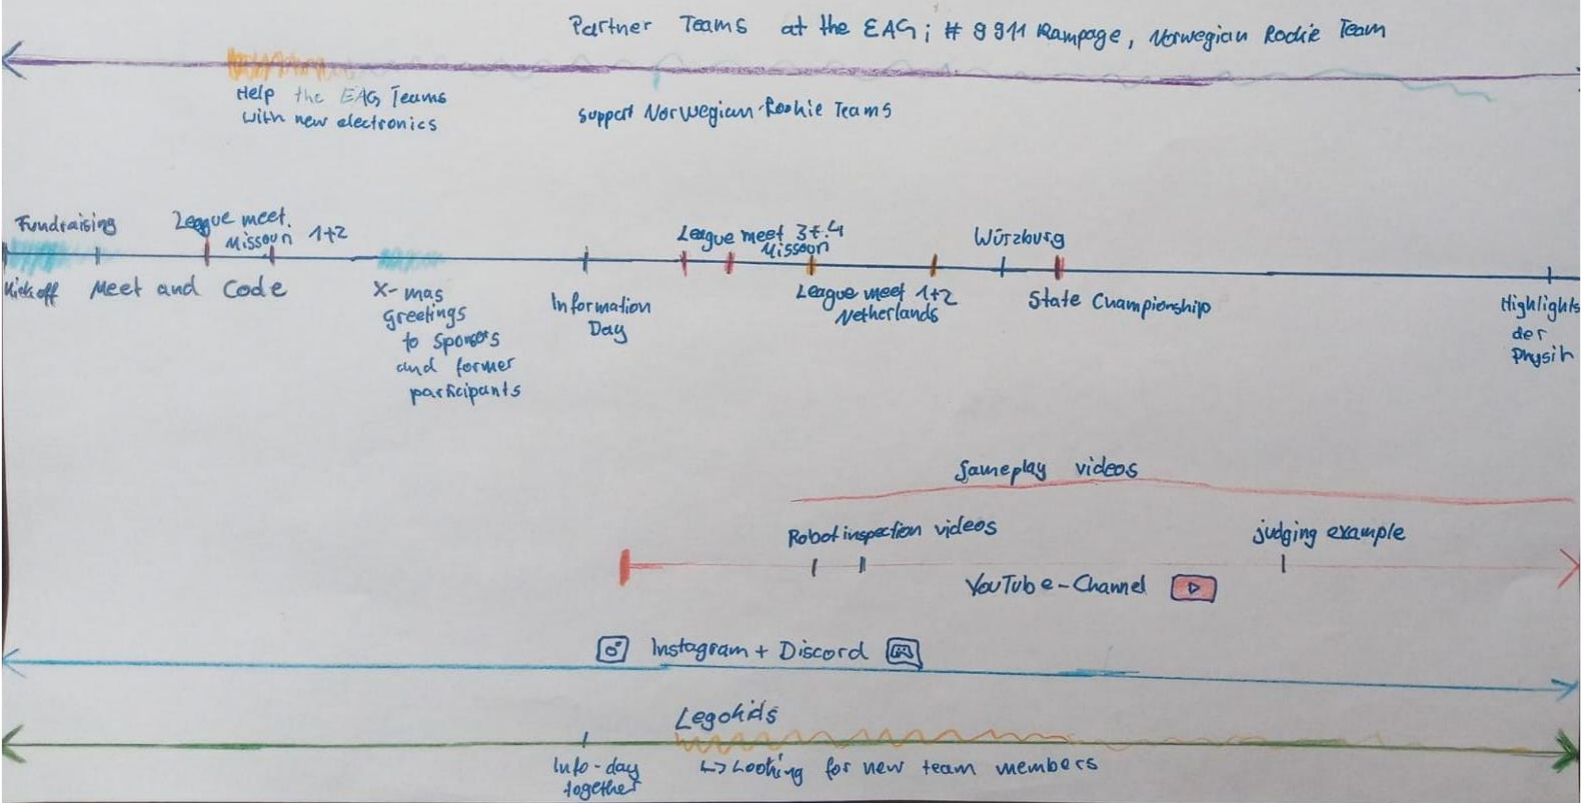 Partner Teams at the EAG; # 9911 Rampage, Norwegian Rookie Team
Help the EAG Teams
with new electronics
support Norwegian Rookie Teams
Fundraising
League meet.
Missouri 1+2
League meet 3+4
Missouri
Würzburg
Kick off
Meet and Code
X-mas
greetings
to Sponsors
and former
participants
Information
Day
League meet 1+2
Netherlands
State Championship
Highlights
der
Physik
Gameplay videos
Robot inspection videos
judging example
YouTube-Channel
Instagram + Discord
Legokids
Info-day
together
↳ Looking for new team members